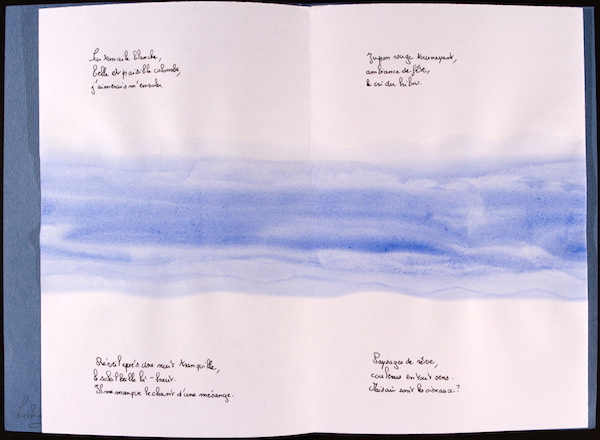 Sur ton aile blanche,
belle et paisible colombe,
j'aimerais m'envoler.
Jupon rouge tournoyant,
ambiance de fête,
le cri du hibou.
Réveil après une nuit tranquille,
le soleil brille là-haut.
Il me manque le chant d'une mésange.
Paysages de rêve,
couleurs en tout sens.
Mais où sont les oiseaux?